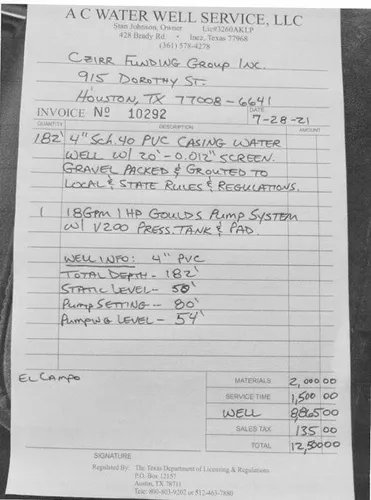 A C WATER WELL SERVICE, LLC
Stan Johnson, Owner Lic#3260AKLP
428 Brady Rd. • Inez, Texas 77968
(361) 578-4278
CZIRR FUNDING GROUP INC.
915 DOROTHY ST.
HOUSTON, TX 77008-6641
INVOICE Nº 10292 DATE 7-28-21
QUANTITY DESCRIPTION AMOUNT
182' 4" Sch.40 PVC CASING WATER
WELL W/ 20' - 0.012" SCREEN.
GRAVEL PACKED & GROUTED TO
LOCAL & STATE RULES & REGULATIONS.
1 18GPM 1HP GOULDS PUMP SYSTEM
W/ V200 PRESS. TANK & PAD.
WELL INFO: 4" PVC
TOTAL DEPTH - 182'
STATIC LEVEL - 50'
PUMP SETTING - 80'
PUMPING LEVEL - 54'
EL CAMPO
MATERIALS 2,000 00
SERVICE TIME 1,500 00
WELL 8,865 00
SALES TAX 135 00
TOTAL 12,500 00
SIGNATURE
Regulated By: The Texas Department of Licensing & Regulations
P.O. Box 12157
Austin, TX 78711
Tele: 800-803-9202 or 512-463-7880